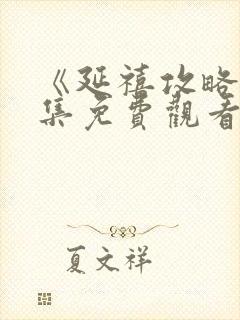 《延禧攻略
集免費觀看
夏文祥